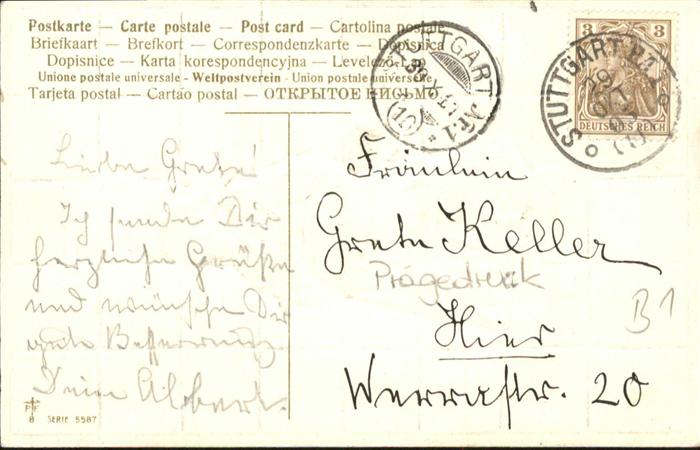 Postkarte — Carte postale — Post card — Cartolina postale
Briefkaart — Brefkort — Correspondenzkarte — Dopisnica
Dopisnice — Karta korespondencyjna — Levelező-Lap
Unione postale universale - Weltpostverein - Union postale universelle
Tarjeta postal — Cartao postal — ОТКРЫТОЕ ПИСЬМО
STUTTGART Nr.1
STUTTGART
3 3
DEUTSCHES REICH
Liebe Grete!
Ich sende Dir
herzliche Grüße
und wünsche Dir
gute Besserung.
Dein Albert.
Fräulein
Grete Keller
Prägedruck
B1
Hier
Werrastr. 20
PF
B SERIE 5587